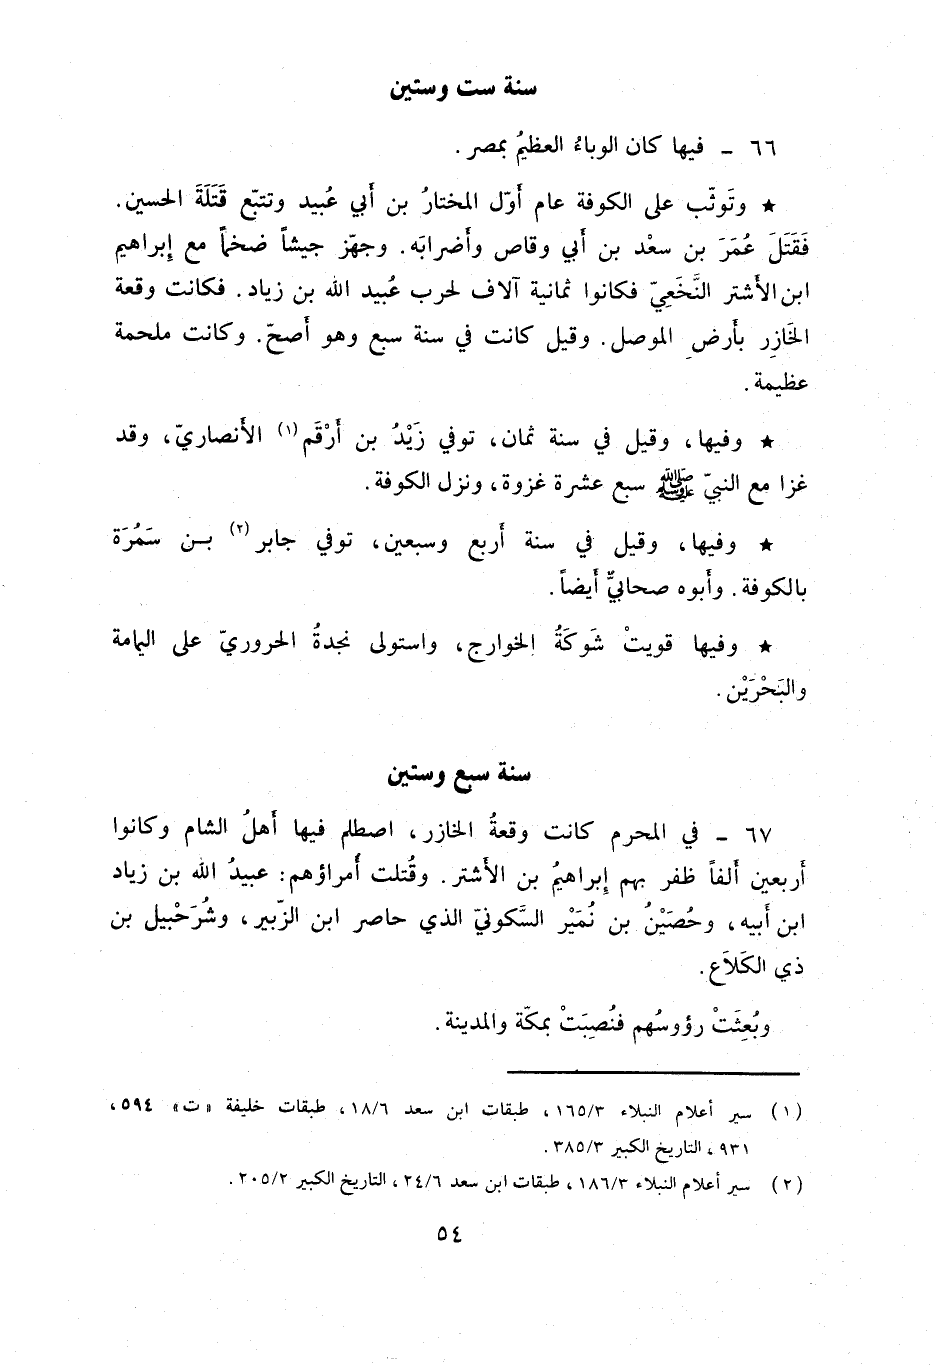 سنة ست وستين
٦٦ – فيها كان الوباءُ العظيمُ بمصر .
★ وتَوثّب على الكوفة عام أَوّل المختارُ بن أَبي عُبيد وتتبّع قَتَلَةَ الحسين .
فَقَتَلَ عُمَرَ بن سعْد بن أَبي وقاص وأَضرابَه . وجهّز جيشاً ضخماً مع إبراهيم
ابن الأَشتر النَّخَعِيّ فكانوا ثمانية آلاف لحرب عُبيد الله بن زياد . فكانت وقعة
الخَازِر بأَرضِ الموصل . وقيل كانت في سنة سبع وهو أَصحّ . وكانت ملحمة
عظيمة .
★ وفيها ، وقيل في سنة ثمان ، توفي زَيْدُ بن أَرْقَم (١) الأَنصاريّ ، وقد
غزا مع النبيّ ﷺ سبع عشرة غزوة ، ونزل الكوفة .
★ وفيها ، وقيل في سنة أَربع وسبعين ، توفي جابر (٢) بـن سَمُرَة
بالكوفة . وأَبوه صحابيٌّ أَيضاً .
★ وفيها قويتْ شَوكَةُ الخوارج ، واستولى نجدةُ الحروريّ على اليمامة
والبَحْرَيْن .
سنة سبع وستين
٦٧ – في المحرم كانت وقعةُ الخازر ، اصطلم فيها أَهلُ الشام وكانوا
أَربعين أَلفاً ظفر بهم إِبراهيمُ بن الأَشتر . وقُتلت أُمراؤهم : عبيدُ الله بن زياد
ابن أَبيه ، وحُصَيْنُ بن نُمَيْر السَّكونيّ الذي حاصر ابن الزّبير ، وشُرَحْبيل بن
ذي الكَلاَع .
وبُعِثَتْ رؤوسُهم فنُصِبَتْ بمكّة والمدينة .
(١) سير أعلام النبلاء ١٦٥/٣ ، طبقات ابن سعد ١٨/٦ ، طبقات خليفة « ت » ٥٩٤ ،
٩٣١ ، التاريخ الكبير ٣٨٥/٣ .
(٢) سير أعلام النبلاء ١٨٦/٣ ، طبقات ابن سعد ٢٤/٦ ، التاريخ الكبير ٢٠٥/٢ .
٥٤